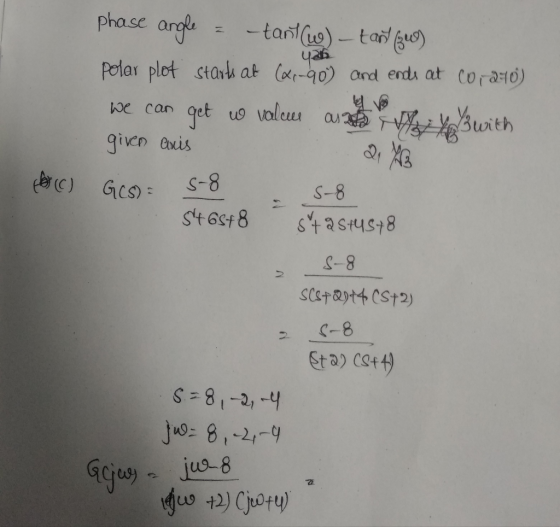 phase angle = -tan⁻¹(ω) - tan⁻¹(3ω)
polar plot starts at (α,-90°) and ends at (0,-270°)
we can get ω values as 1/3 with
given axis 2, 1/√3
(c) G(s) = s-8 / s²+6s+8 = s-8 / s²+2s+4s+8
= s-8 / s(s+2)+4(s+2)
= s-8 / (s+2)(s+4)
s = 8, -2, -4
jω = 8, -2, -4
G(jω) = jω-8 / (jω+2)(jω+4) =